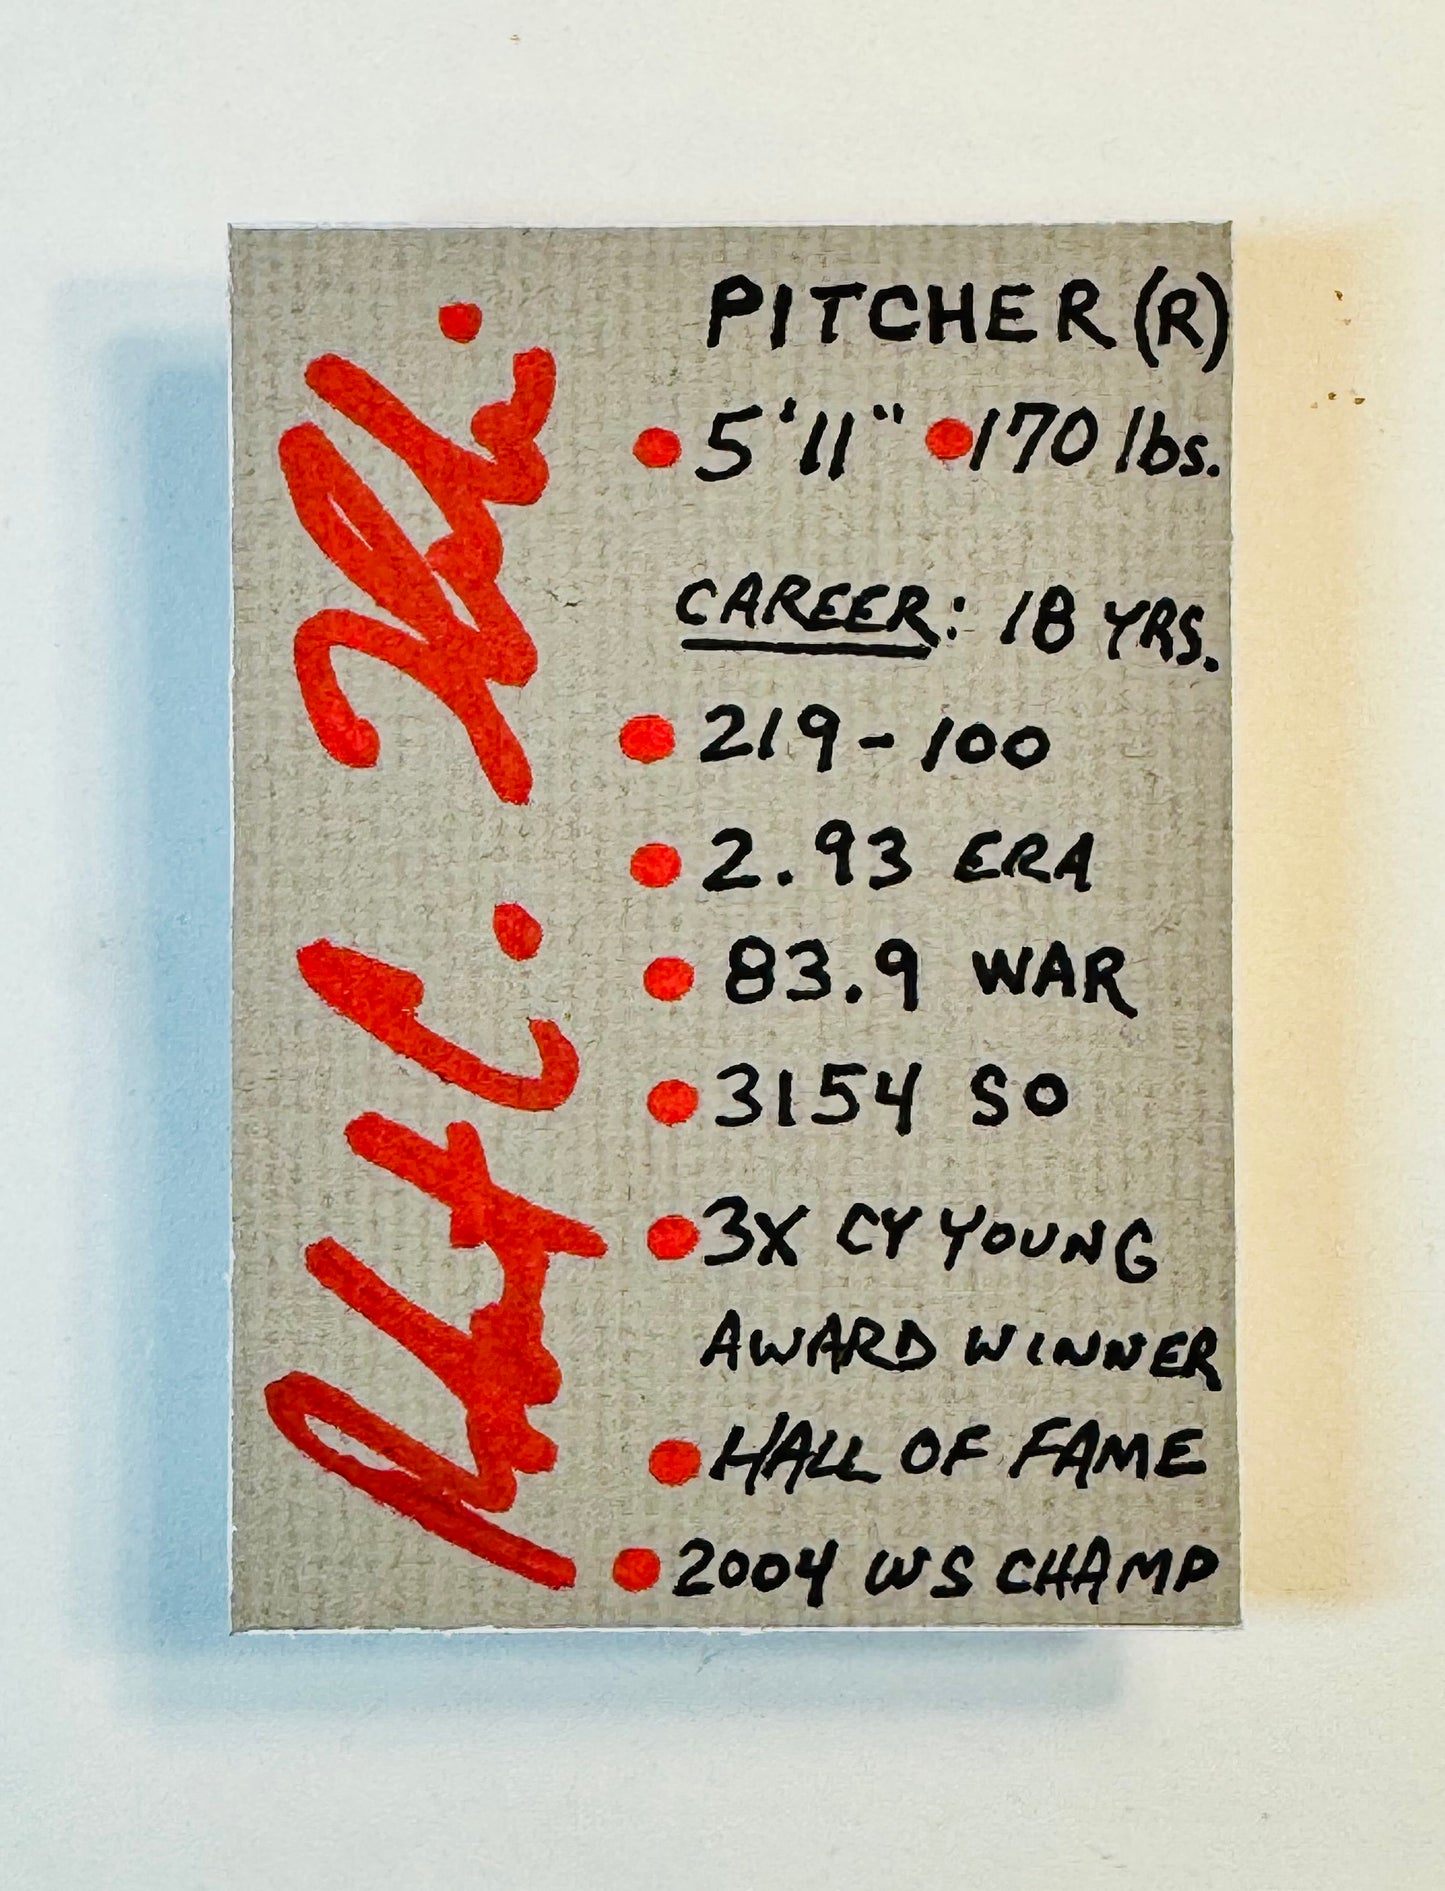 PITCHER (R)
• 5'11" • 170 lbs.
CAREER: 18 YRS.
• 219-100
• 2.93 ERA
• 83.9 WAR
• 3154 SO
• 3X CY YOUNG
AWARD WINNER
• HALL OF FAME
• 2004 WS CHAMP